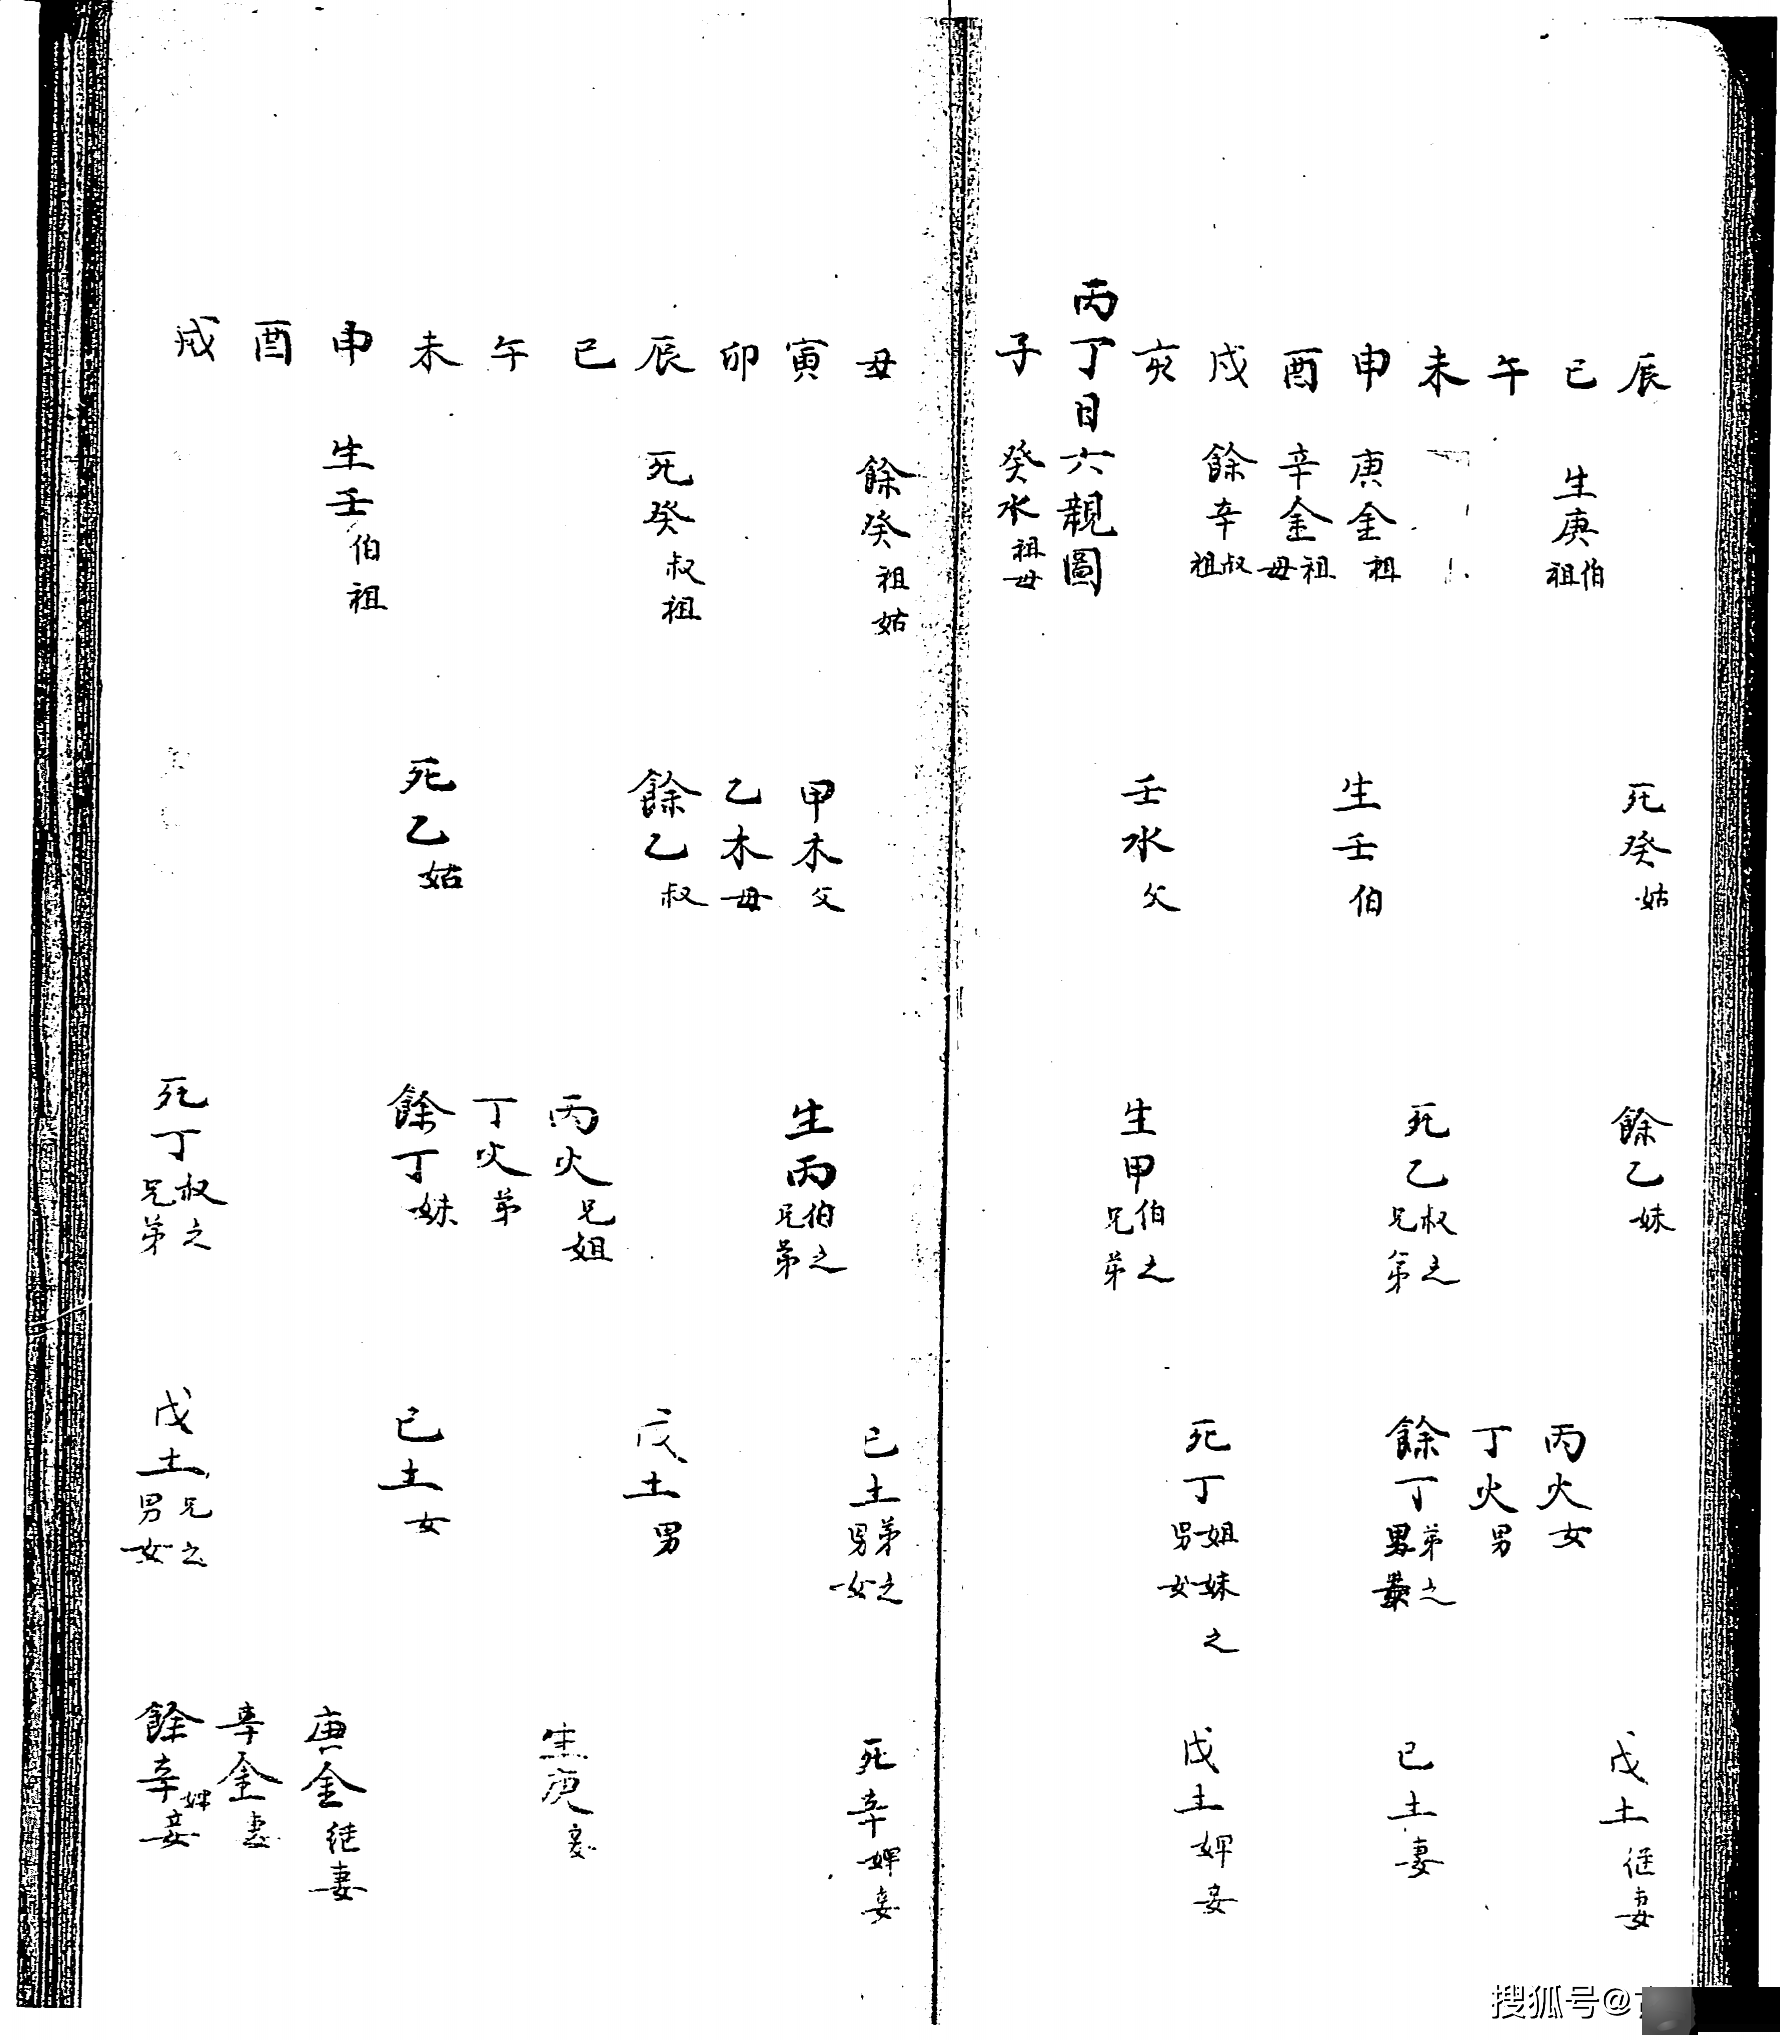 辰 死癸姑 餘乙妹 戊土継妻
巳 生庚伯祖 丙火女
午 丁火男
未 死乙叔之兄弟 餘丁弟之男 己土妻
申 庚金祖 生壬伯
酉 辛金祖母
戌 餘辛叔祖 死丁姐妹之男女 戊土婢妾
亥 壬水父 生甲伯之兄弟
丙丁日六親圖
子 癸水祖母
丑 餘癸祖姑 己土弟之男女 死辛婢妾
寅 甲木父 生丙伯之兄弟
卯 乙木母
辰 死癸叔祖 餘乙叔 戊土男
巳 丙火兄姐 生庚妾
午 丁火弟
未 死乙姑 餘丁妹 己土女
申 生壬伯祖 庚金継妻
酉 辛金妻
戌 死丁叔之兄弟 戊土兄之男女 餘辛婢妾
搜狐号@